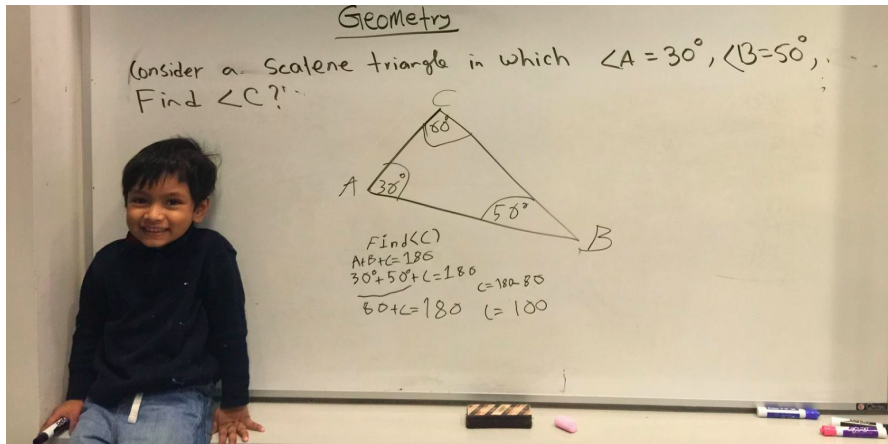 Geometry
Consider a scalene triangle in which <A = 30°, <B=50°,
Find <C?
C
60°
A
30°
50°
B
Find<C)
A+B+C=180
30°+50°+C=180
C=180-80
80+C=180
C=100